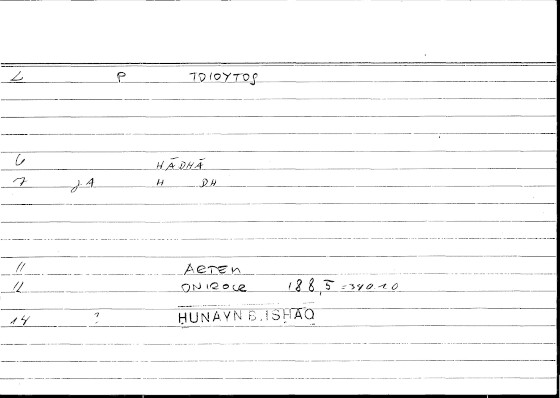 2 P ΤΟΙΟΥΤΟς
6 HĀDHĀ
7 JA H DH
11 ARTEM
12 ONIROCR 188,5 = 340.10
14 ? HUNAYN B. ISHAQ